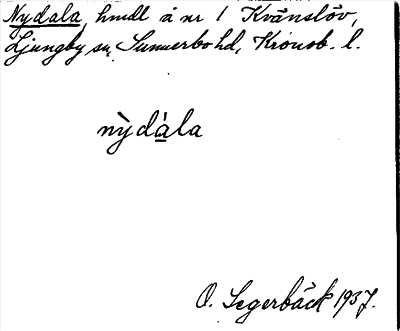 Nydala, hmdl å nr 1 Kvänslöv,
Ljungby sn, Sunnerbo hd, Kronob. l.
nỳdála
O. Segerbäck 1937.